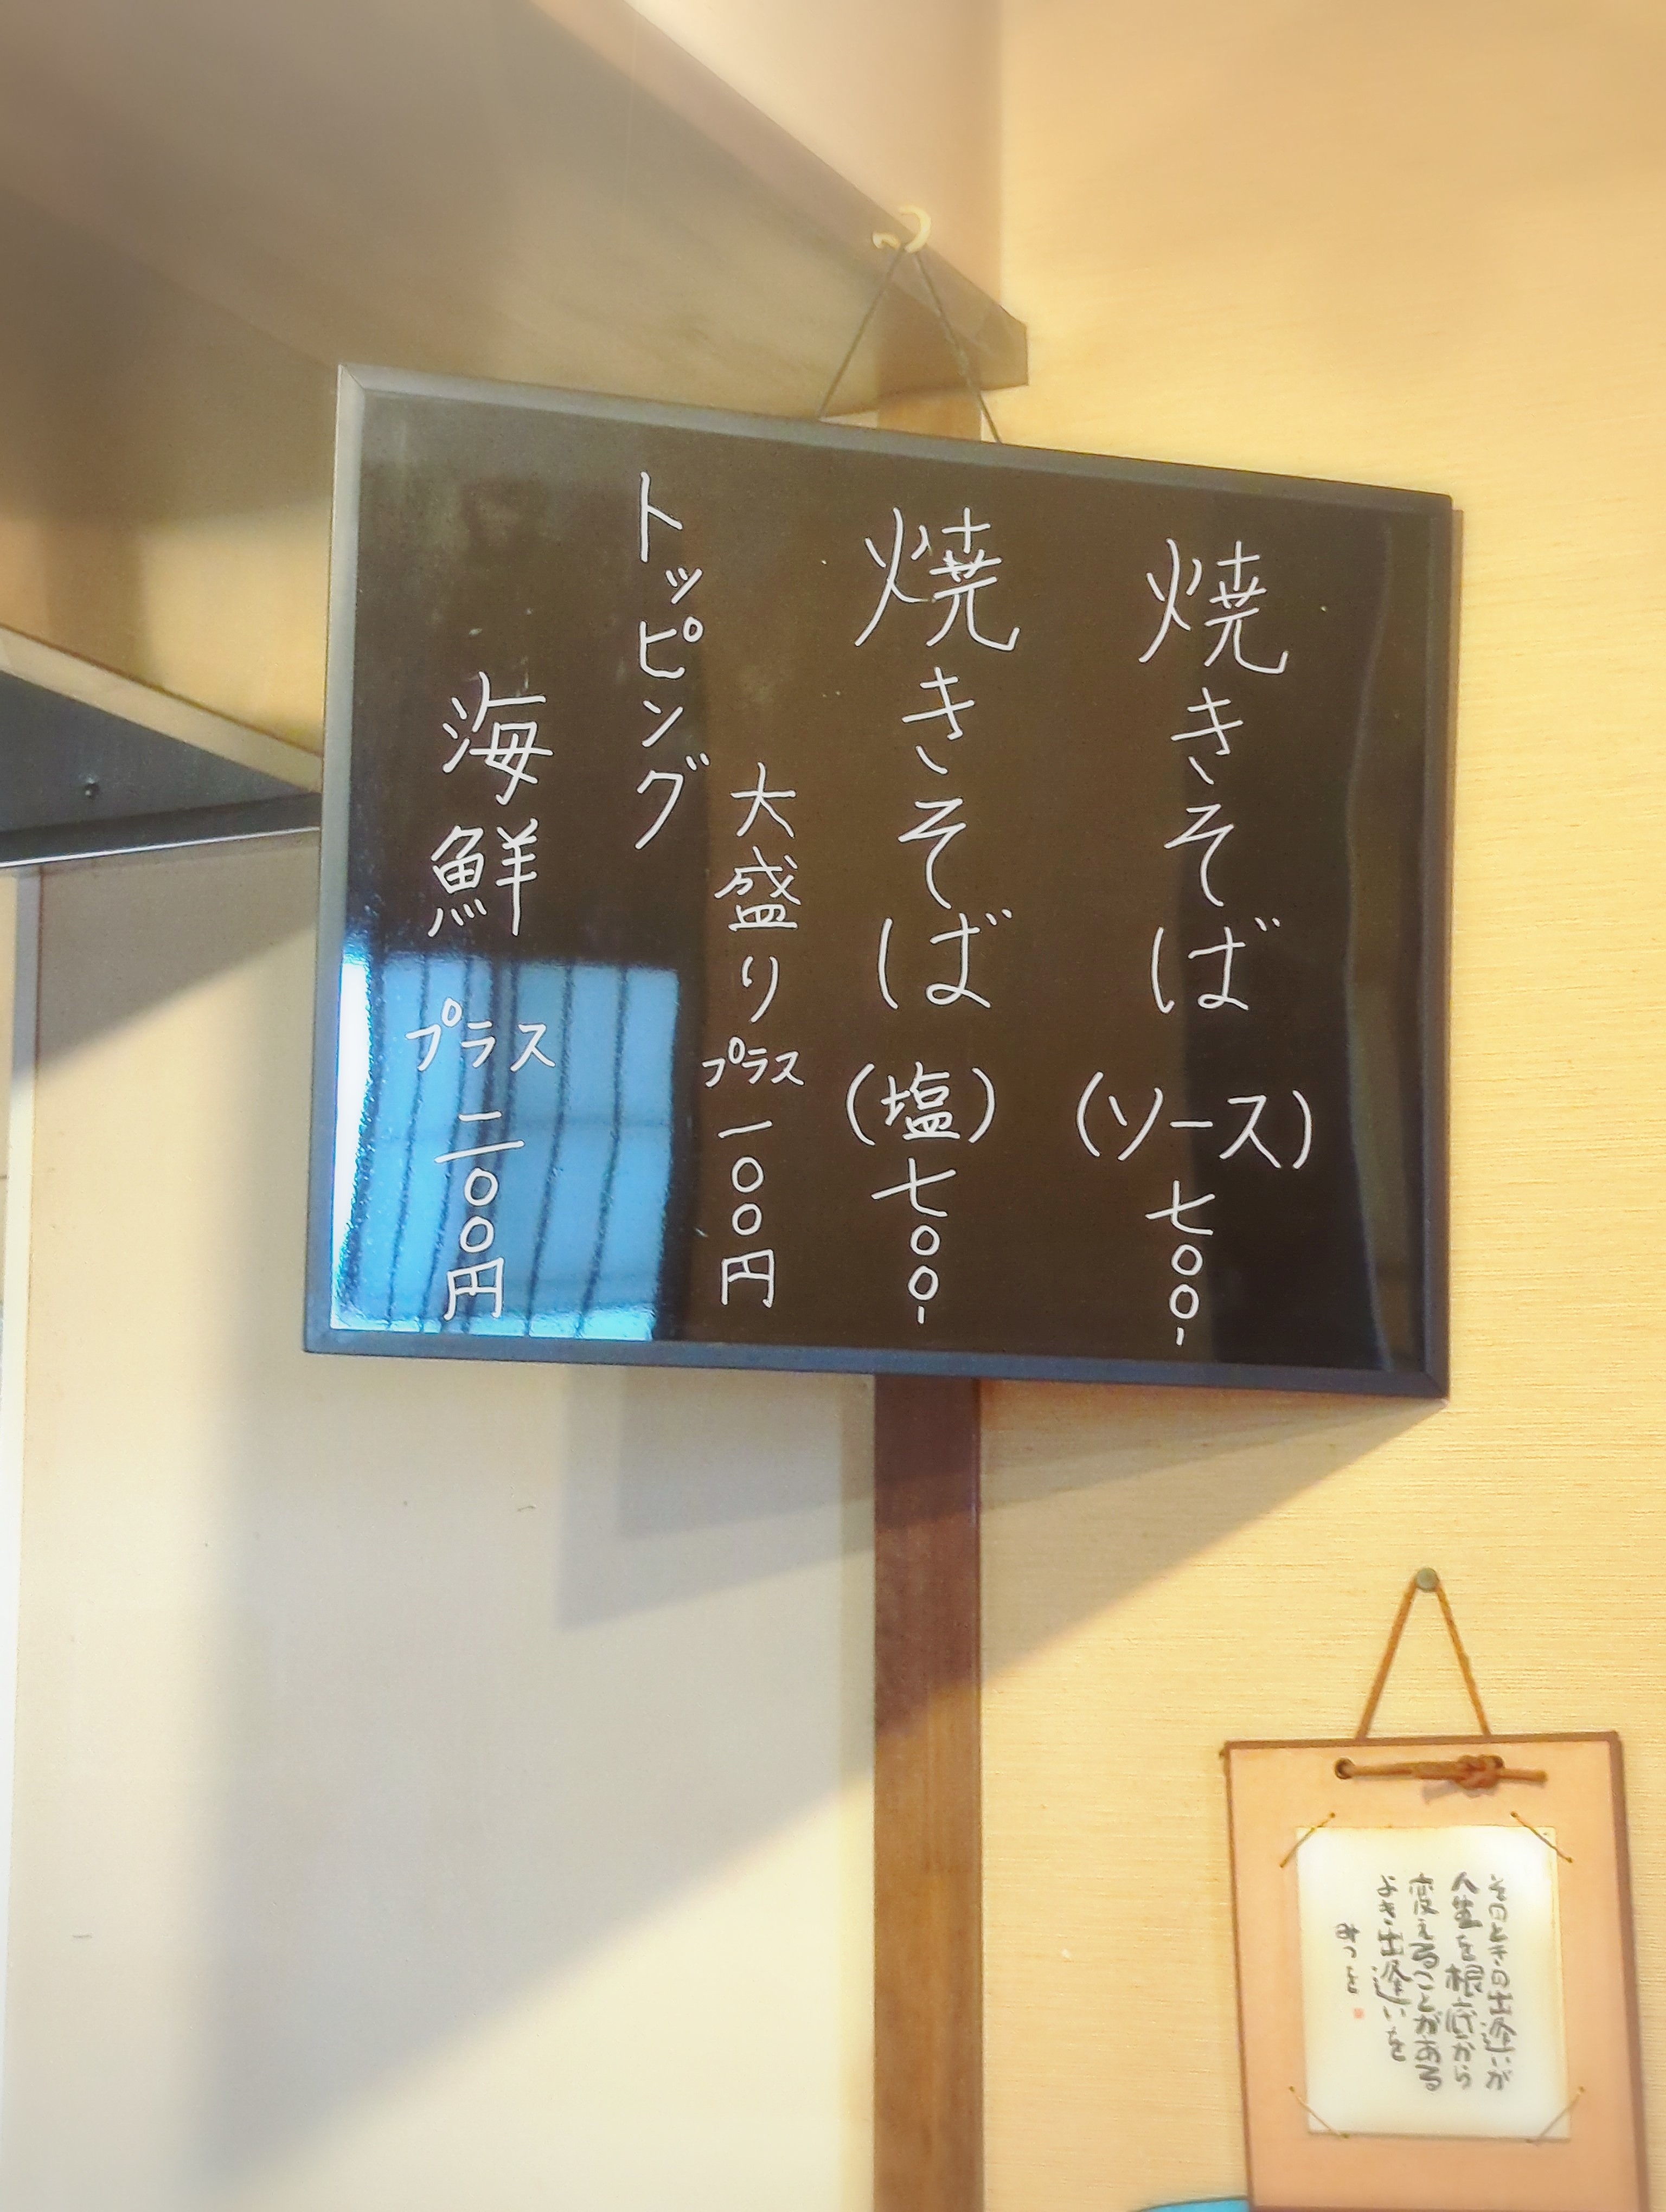 焼きそば(ソース)七〇〇-
焼きそば(塩)七〇〇-
大盛りプラス一〇〇円
トッピング
海鮮プラス二〇〇円
そのときの出逢いが
人生を根底から
変えることがある
よき出逢いを
みつを